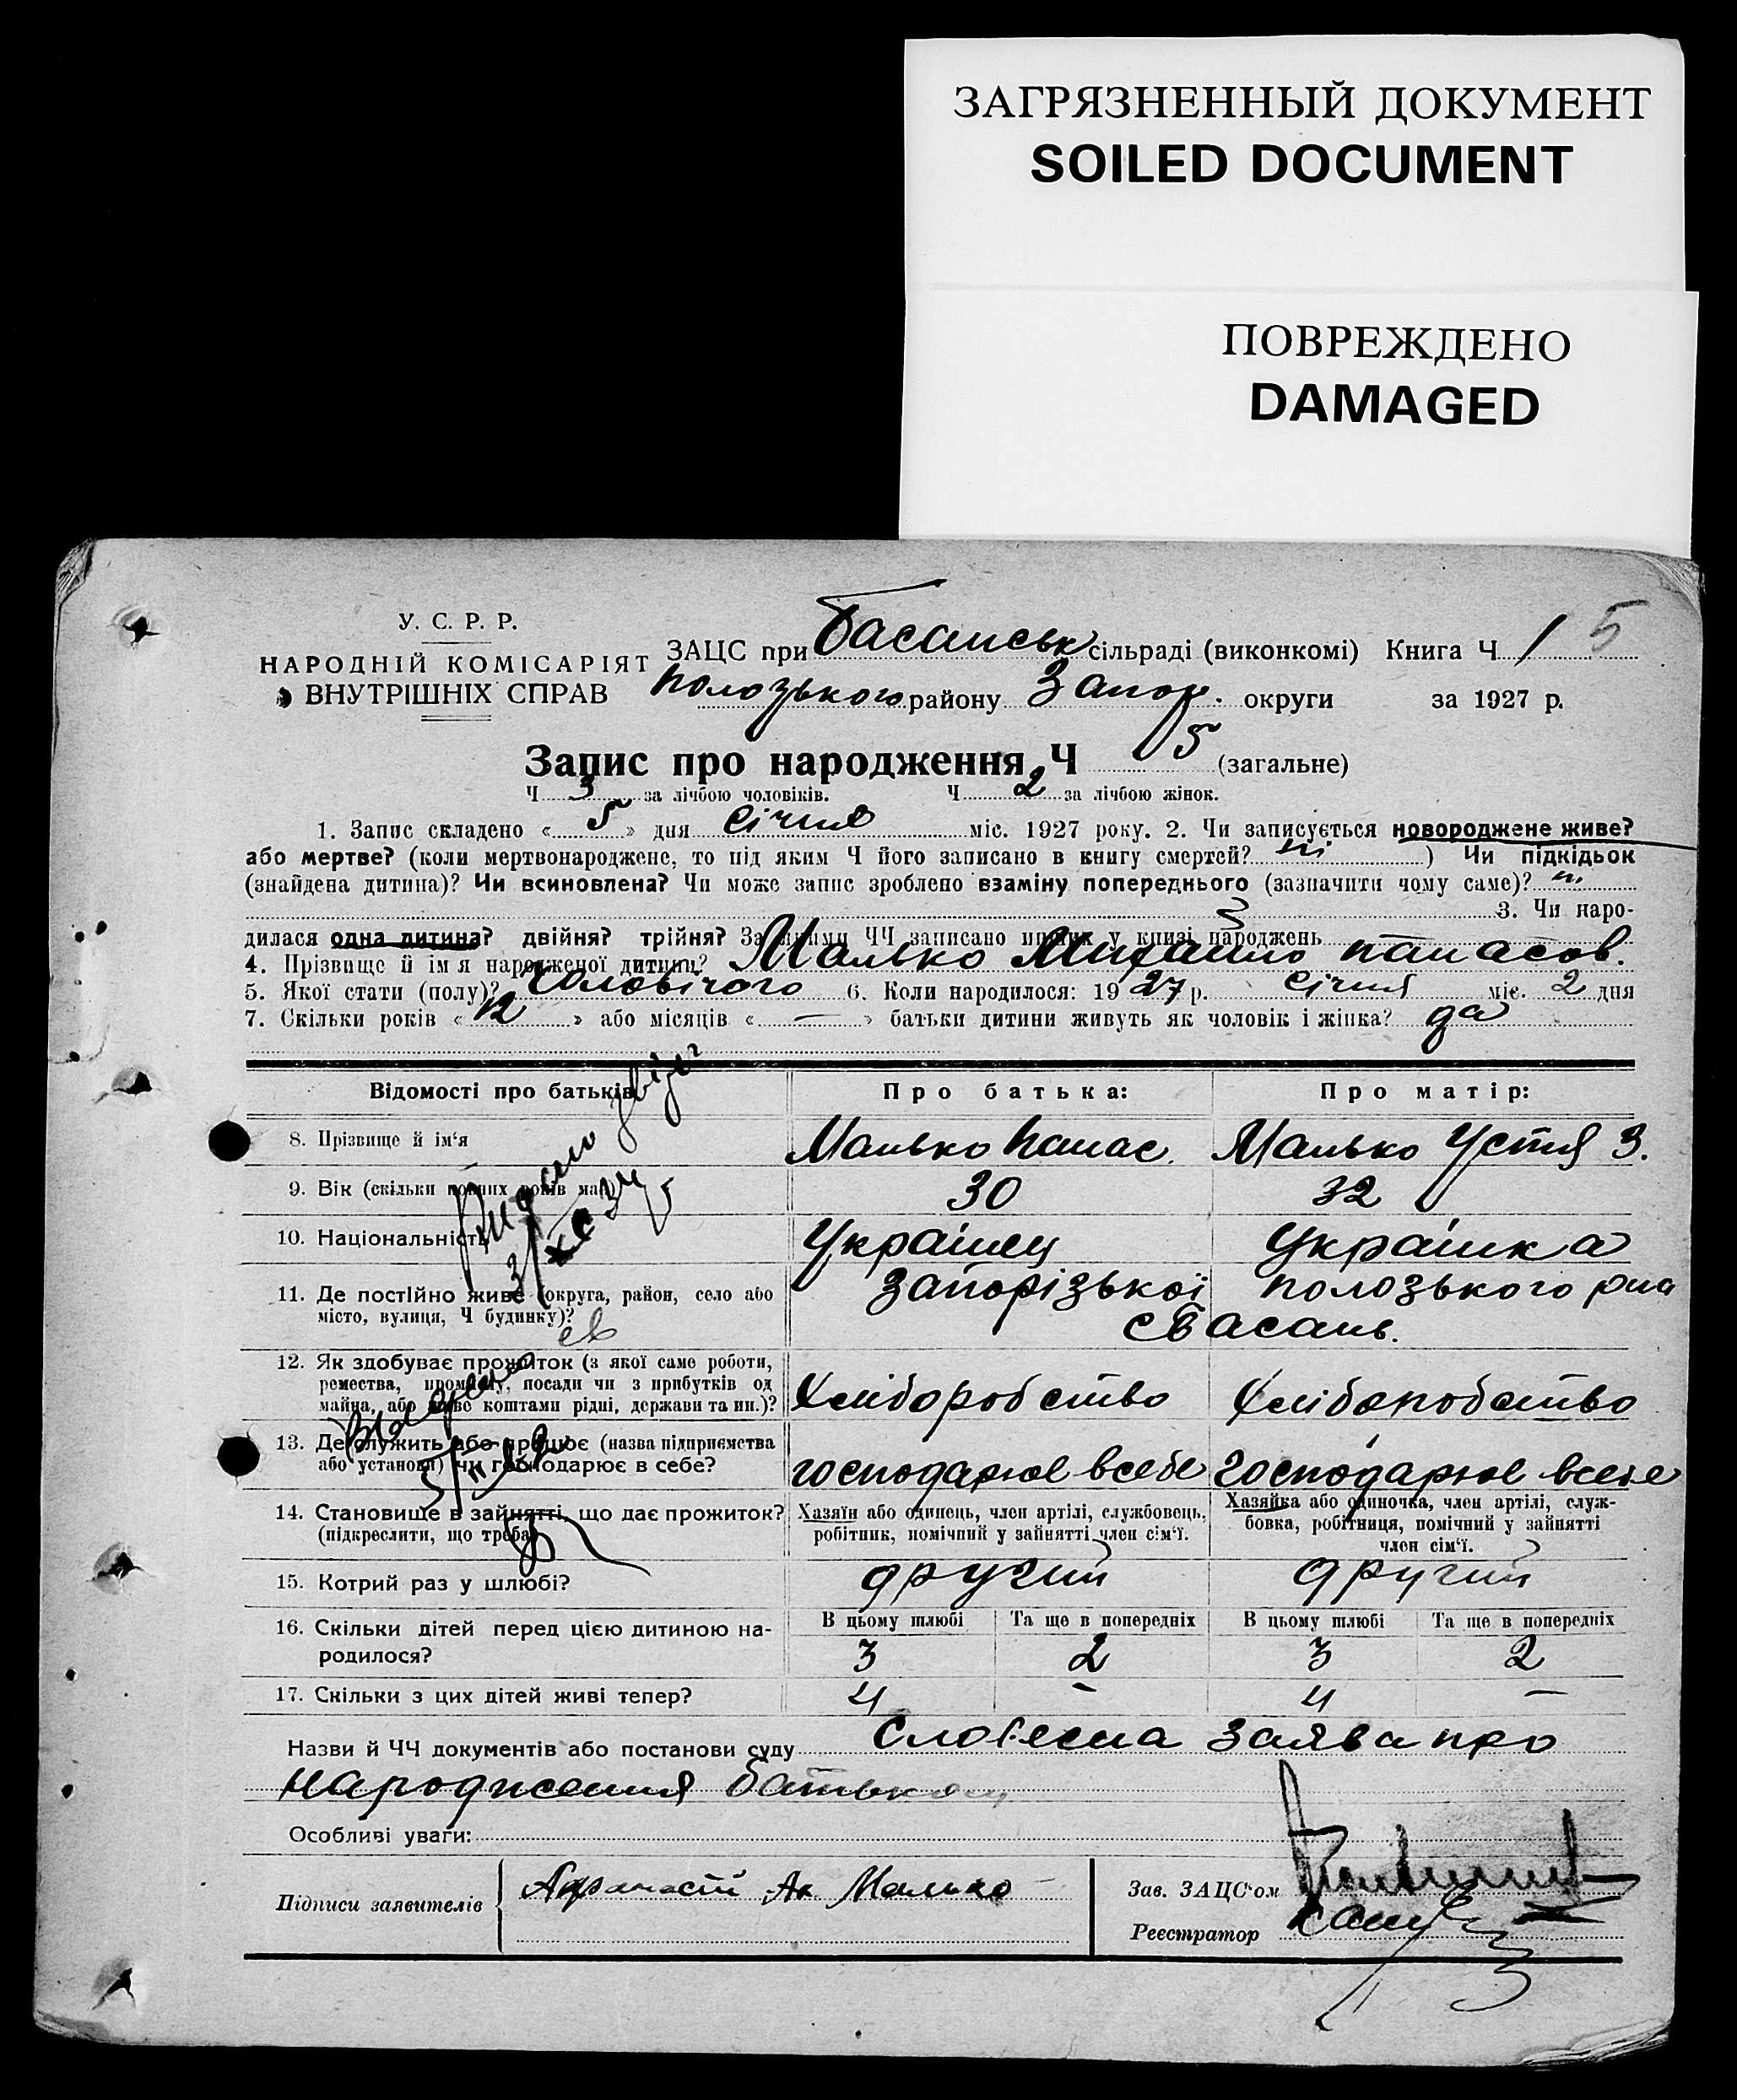 ЗАГРЯЗНЕННЫЙ ДОКУМЕНТ
SOILED DOCUMENT
ПОВРЕЖДЕНО
DAMAGED
У. С. Р. Р.
НАРОДНІЙ КОМІСАРІЯТ
ВНУТРІШНІХ СПРАВ
ЗАЦС при Басанськ сільраді (виконкомі) Книга Ч 1 5
Полозького району Запор. округи за 1927 р.
Запис про народження Ч 5 (загальне)
Ч 3 за лічбою чоловіків. Ч 2 за лічбою жінок.
1. Запис складено « 5 » дня Січня міс. 1927 року. 2. Чи записується новороджене живе?
або мертве? (коли мертвонароджене, то під яким Ч його записано в книгу смертей? ні ) Чи підкідьок
(знайдена дитина)? Чи всиновлена? Чи може запис зроблено взаміну попереднього (зазначити чому саме)? ні
3. Чи наро-
дилася одна дитина? двійня? трійня? За якими ЧЧ записано инших у книзі народжень
4. Прізвище й імя народженої дитини? Малько Михайло Панасов.
5. Якої стати (полу)? Чоловічого 6. Коли народилося: 1927 р. Січня міс. 2 дня
7. Скільки років « 12 » або місяців « — » батьки дитини живуть як чоловік і жінка? да
Відомості про батьків Про батька: Про матір:
8. Прізвище й ім'я Малько Панас. Малько Устя З.
9. Вік (скільки повних років має) 30 32
10. Національність Украінец Украінка
11. Де постійно живе (округа, район, село або
місто, вулиця, Ч будинку)? Запорізькоі Полозького рна
с Басань.
12. Як здобуває прожиток (з якої саме роботи,
ремества, промислу, посади чи з прибутків од
майна, або живе коштами рідні, держави та ин.)? Хліборобство Хліборобство
13. Де служить або працює (назва підприємства
або установи) чи господарює в себе? господарює всебе господарює всебе
14. Становище в зайнятті, що дає прожиток?
(підкреслити, що треба)
Хазяїн або одинець, член артілі, службовець,
робітник, помічний у зайнятті член сім'ї.
Хазяйка або одиночка, член артілі, служ-
бовка, робітниця, помічний у зайнятті
член сім'ї.
15. Котрий раз у шлюбі? другий другий
В цьому шлюбі Та ще в попередніх В цьому шлюбі Та ще в попередніх
16. Скільки дітей перед цією дитиною на-
родилося? 3 2 3 2
17. Скільки з цих дітей живі тепер? 4 – 4 –
Назви й ЧЧ документів або постанови суду Словесна заява про
народження батьком
Особливі уваги:
Підписи заявителів Афанасій Малько
Зав. ЗАЦС'ом
Реєстратор